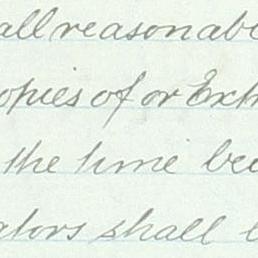 all reasonab
opies of or Extr
the time bei
ators shall b